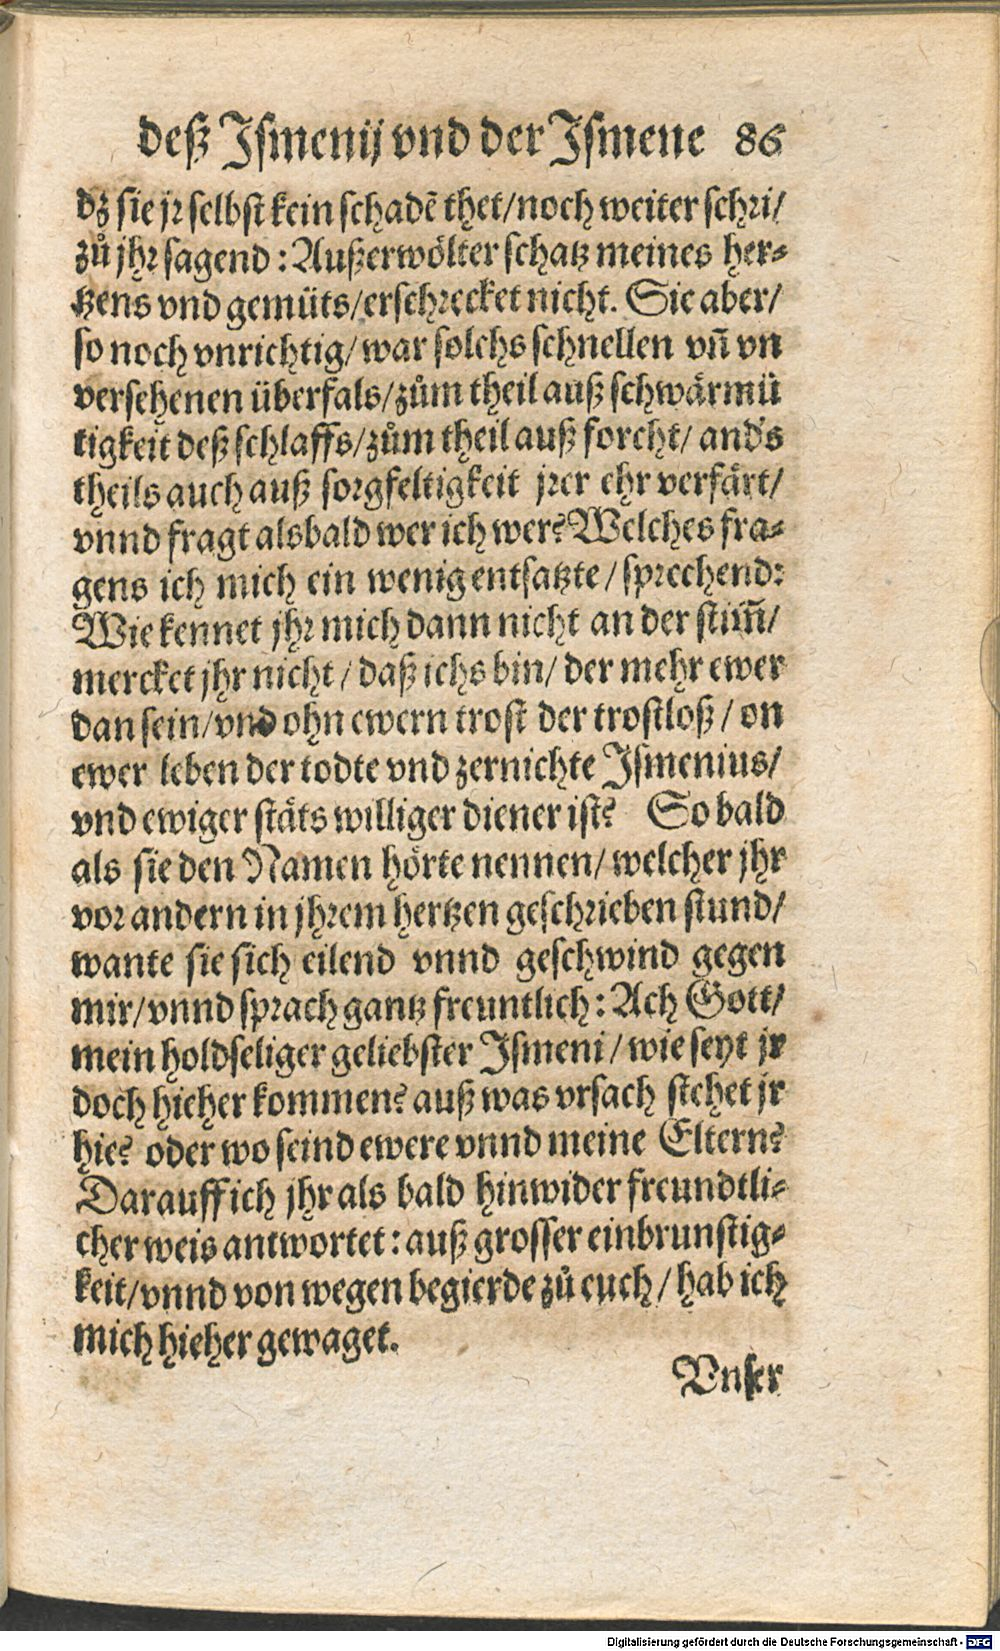 deß Iſmenij vnd der Iſmene 86
dz ſie jr ſelbſt kein ſchadẽ thet/noch weiter ſchri/
zů jhr ſagend : Außerwölter ſchatz meines her⸗
tzens vnd gemüts/erſchrecket nicht. Sie aber/
ſo noch vnrichtig/ war ſolchs ſchnellen vñ vn
verſehenen überfals/zům theil auß ſchwärmü
tigkeit deß ſchlaffs/zům theil auß forcht/ and's
theils auch auß ſorgfeltigkeit jrer ehr verfärt/
vnnd fragt alsbald wer ich wer? Welches fra⸗
gens ich mich ein wenig entſatzte / ſprechend:
Wie kennet jhr mich dann nicht an der ſtim̃/
mercket jhr nicht / daß ichs bin/ der mehr ewer
dan ſein/vnd ohn ewern troſt der troſtloß / on
ewer leben der todte vnd zernichte Iſmenius/
vnd ewiger ſtäts williger diener iſt? So bald
als ſie den Namen hörte nennen/ welcher jhr
vor andern in jhrem hertzen geſchrieben ſtund/
wante ſie ſich eilend vnnd geſchwind gegen
mir/vnnd ſprach gantz freuntlich : Ach Gott/
mein holdſeliger geliebſter Iſmeni / wie ſeyt jr
doch hieher kommen? auß was vrſach ſtehet jr
hie? oder wo ſeind ewere vnnd meine Eltern?
Darauff ich jhr als bald hinwider freundtli⸗
cher weis antwortet : auß groſſer einbrunſtig⸗
keit/vnnd von wegen begierde zů euch / hab ich
mich hieher gewaget.
Vnſer
Digitalisierung gefördert durch die Deutsche Forschungsgemeinschaft - DFG